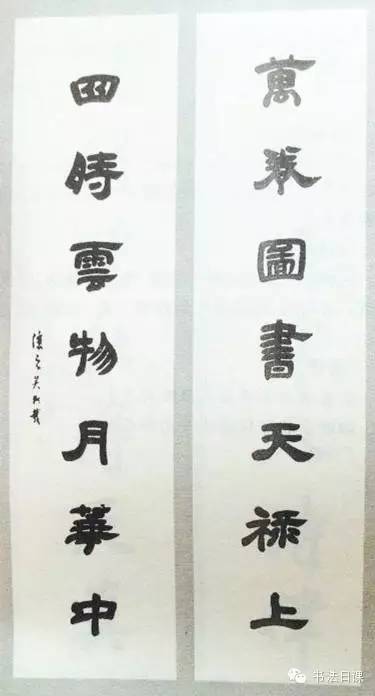 萬卷圖書天禄上
四時雲物月華中
讓之吳熙載
书法日课